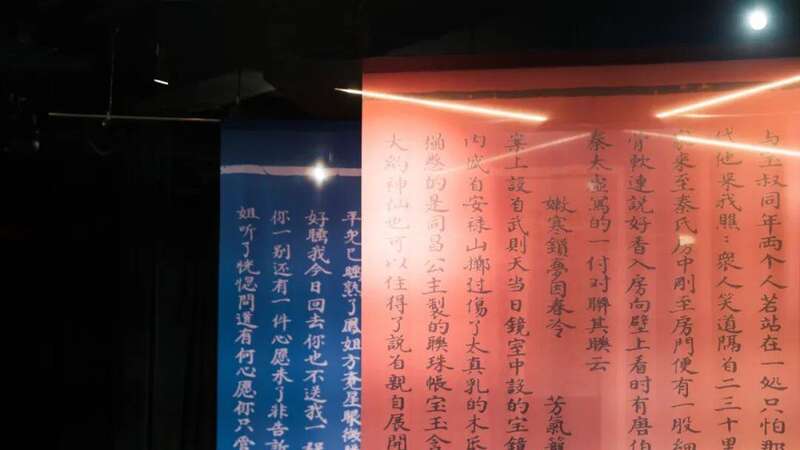 与宝叔同年两个人若站在一处只怕那
他来我瞧：衆人笑道隔自二三十里
来至秦氏房中刚至房门便有一股细
骨軟連説好香入房向壁上看时有唐伯
秦太虚寫的一付对聯其聮云
嫩寒鎖夢因春冷 芳氣籠
案上設自武則天当日鏡室中設的宝鏡
内盛自安禄山擲过傷了太真乳的木瓜
懸的是同昌公主製的聮珠帳宝玉含
大約神仙也可以住得了説自親自展開
平兒已睡熟了鳳姐方覚星眼微
好睡我今日回去你也不送我一程
你一别还有一件心愿未了非告訴
姐听了恍惚問道有何心愿你只管